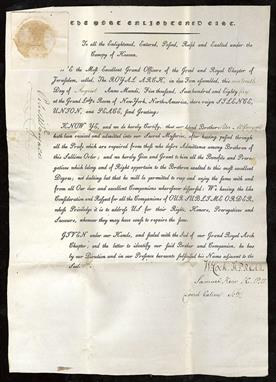 THE MOST ENLIGHTENED EAST.
To all the Enlightened, Entered, Passed, Raised and Exalted under the
Canopy of Heaven.
WE the Most Excellent Grand Officers of the Grand and Royal Chapter of
Jerusalem, called, The ROYAL ARCH, in due Form assembled, this
Day of August Anno Mundi, Five thousand, Four hundred and Eighty
at the Grand Lodge Room of New-York, North-America, where reign SILENCE,
UNION, and PEACE, send Greeting:
KNOW YE, and we hereby Certify, that our loved Brother
hath been received and admitted into our Sacred Mysteries, after having passed through
all the Proofs which are required from those who desire Admittance among Brethren of
this Sublime Order; and we hereby Give and Grant to him all the Benefits and Prero-
gatives which belong and of Right appertain to the Brethren exalted to this most excellent
Degree; and holding that he will be permitted to enjoy the same with and
from all Our dear and excellent Companions wheresoever dispersed: We having the like
Consideration and Respect for all the Companions of OUR SUBLIME ORDER,
whose Priviledge it is to address US for their Right, Honors, Prerogatives and
Succours, whenever they may have cause to require the same.
GIVEN under our Hands, and sealed with the Seal of our Grand Royal Arch
Chapter; and the better to identify our said Brother and Companion, he has
by our Direction and in our Presence hereunto subscribed his Name adjacent to the
Seal.
Samuel Kerr K.